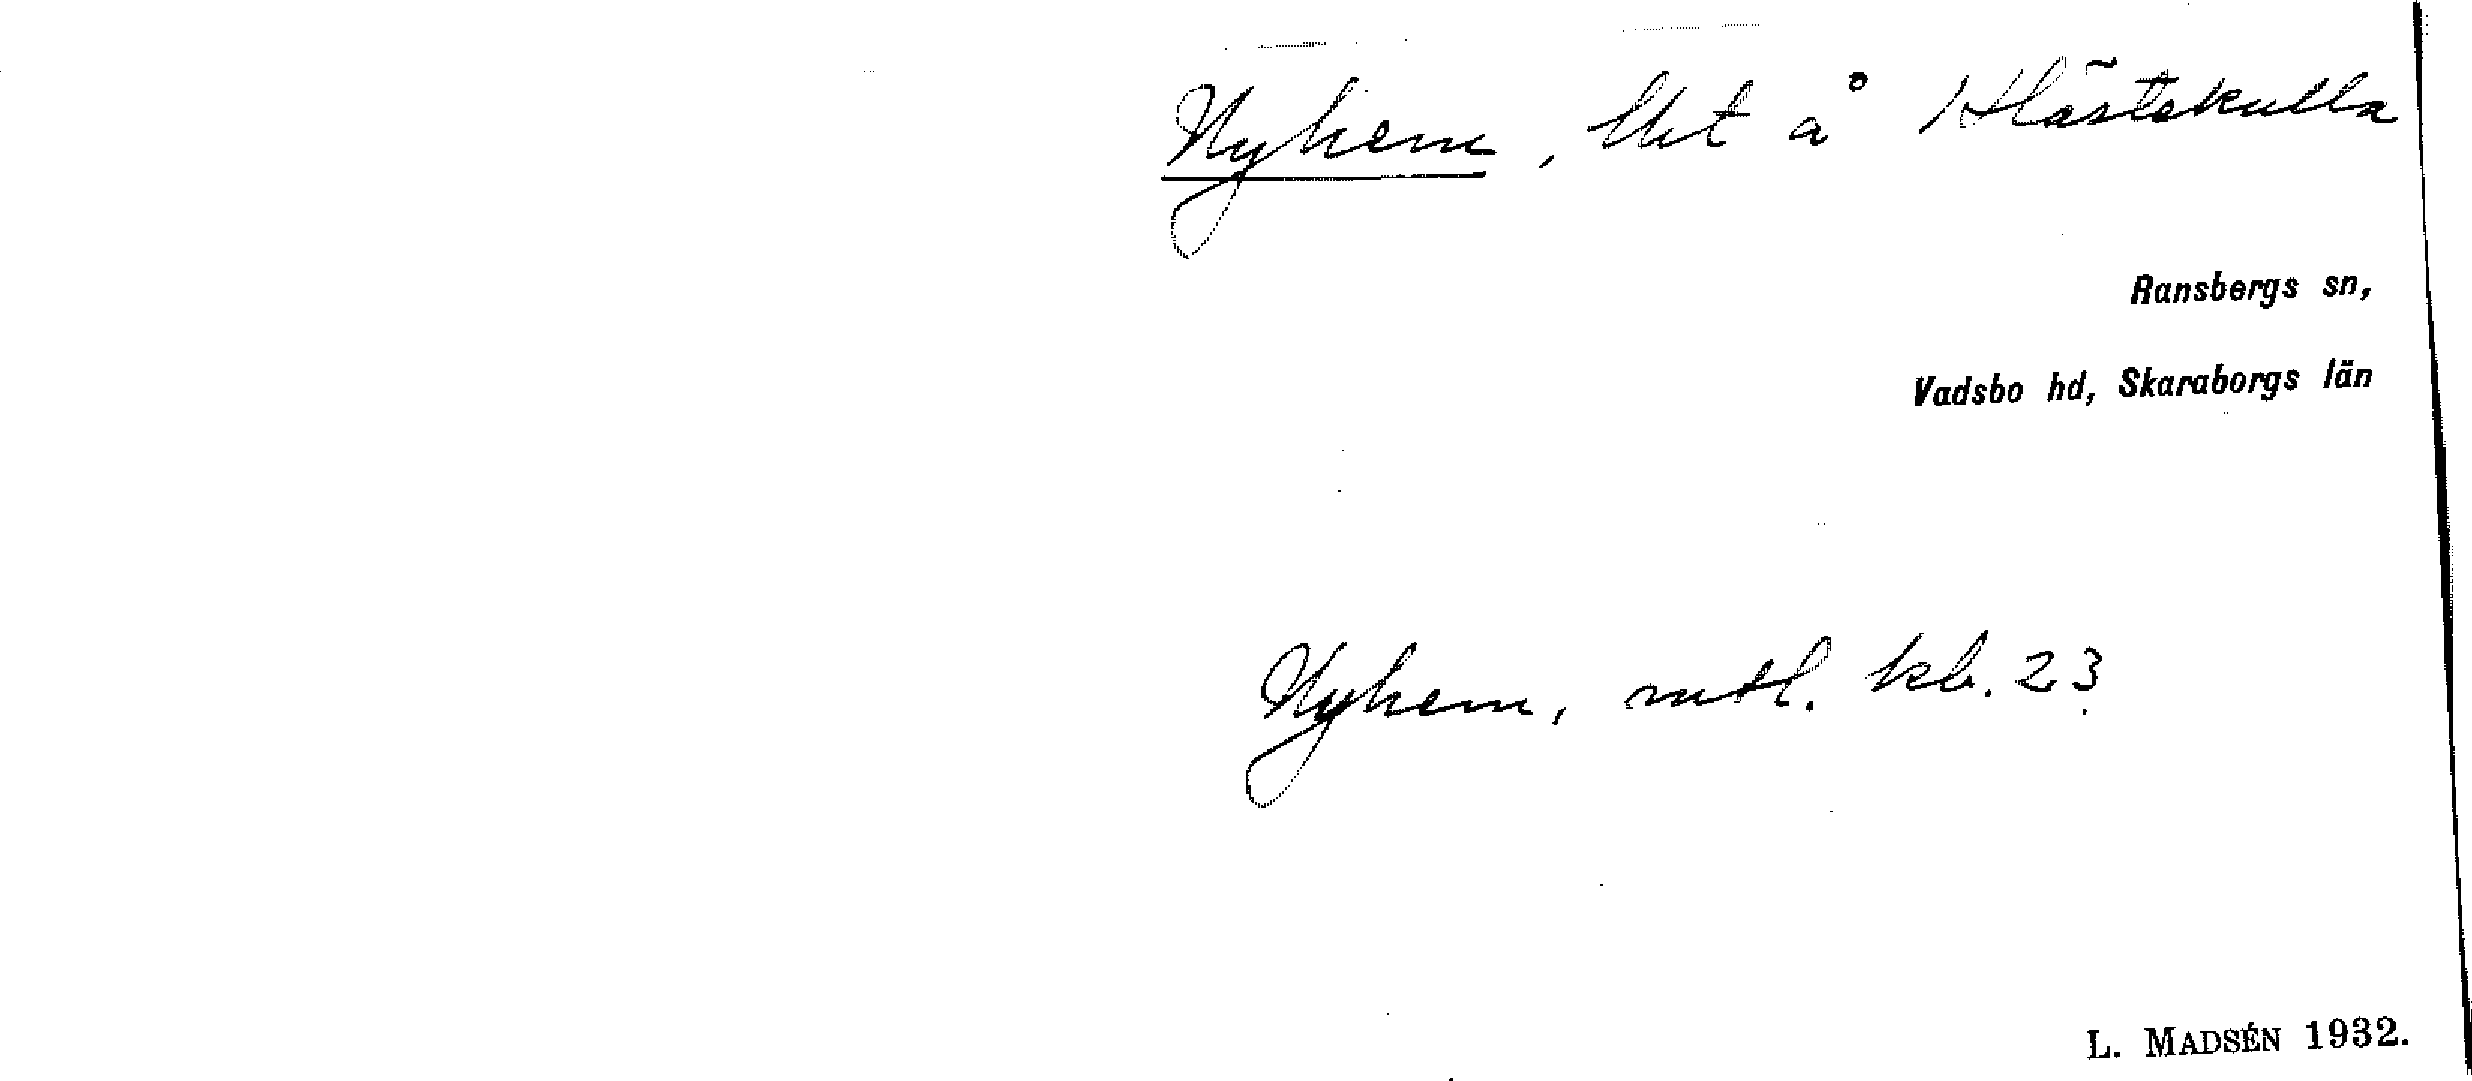 Nyhem, lht å Hästekulla
Ransbergs sn,
Vadsbo hd, Skaraborgs län
Nyhem, mtl. kb. 23
L. MADSÉN 1932.